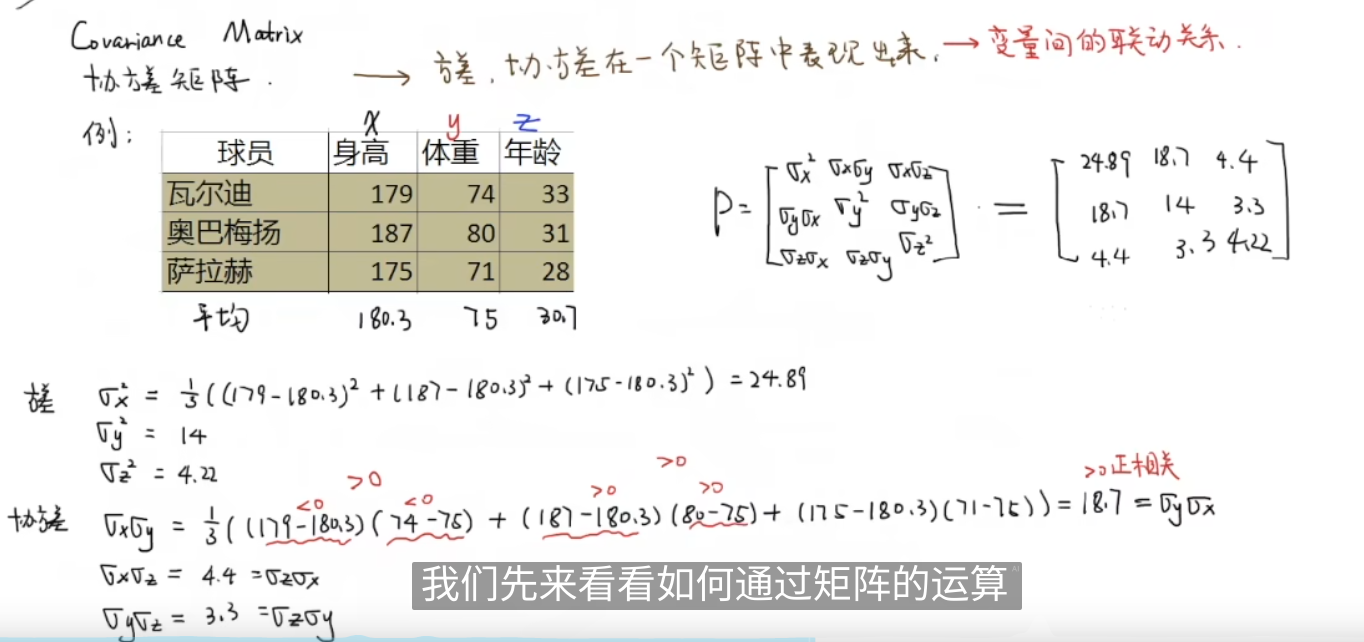 Covariance Matrix
协方差矩阵. → 方差, 协方差在一个矩阵中表现出来, → 变量间的联动关系.
例:
x y z
球员 身高 体重 年龄
瓦尔迪 179 74 33
奥巴梅扬 187 80 31
萨拉赫 175 71 28
平均 180.3 75 30.7
P = [σx² σxσy σxσz
σyσx σy² σyσz
σzσx σzσy σz²]
= [24.89 18.7 4.4
18.7 14 3.3
4.4 3.3 4.22]
方差 σx² = 1/3((179-180.3)² + (187-180.3)² + (175-180.3)²) = 24.89
σy² = 14
σz² = 4.22
>0 >0 >0正相关
<0 <0 >0 >0
协方差 σxσy = 1/3((179-180.3)(74-75) + (187-180.3)(80-75) + (175-180.3)(71-75)) = 18.7 = σyσx
σxσz = 4.4 = σzσx
σyσz = 3.3 = σzσy
我们先来看看如何通过矩阵的运算